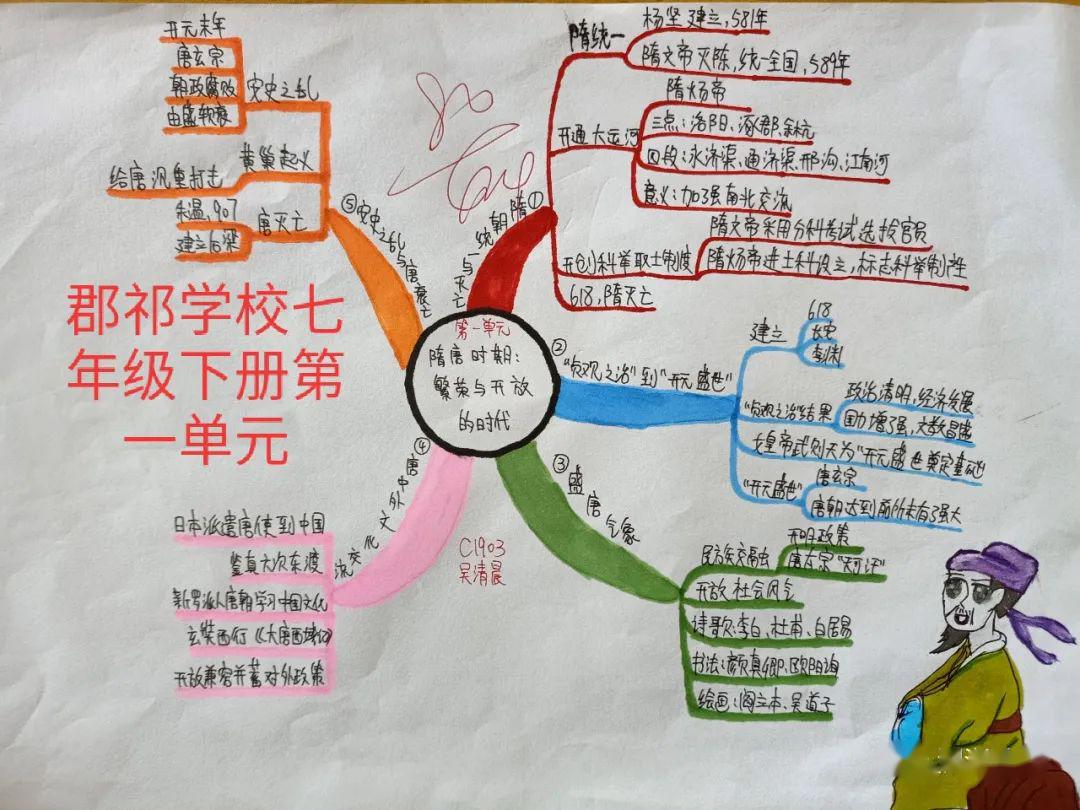 第一单元
隋唐时期:
繁荣与开放
的时代
①隋朝统一与灭亡
隋统一
杨坚建立,581年
隋文帝灭陈,统一全国,589年
开通大运河
隋炀帝
三点:洛阳、涿郡、余杭
四段:永济渠、通济渠、邗沟、江南河
意义:加强南北交流
开创科举取士制度
隋文帝采用分科考试选拔官员
隋炀帝进士科设立,标志科举制诞生
618,隋灭亡
②“贞观之治”到“开元盛世”
建立
618
长安
李渊
“贞观之治”结果
政治清明,经济发展
国力增强,文教昌盛
女皇帝武则天为“开元盛世”奠定基础
“开元盛世”
唐玄宗
唐朝达到前所未有强大
③盛唐气象
民族交融
开明政策
唐太宗“天可汗”
开放社会风气
诗歌:李白、杜甫、白居易
书法:颜真卿、欧阳询
绘画:阎立本、吴道子
④唐中外文化交流
日本派遣唐使到中国
鉴真六次东渡
新罗派人唐朝学习中国文化
玄奘西行《大唐西域记》
开放兼容并蓄对外政策
⑤安史之乱与唐衰亡
安史之乱
开元末年
唐玄宗
朝政腐败
由盛转衰
黄巢起义
给唐沉重打击
唐灭亡
朱温,907
建立后梁
C1903
吴清晨
郡祁学校七
年级下册第
一单元